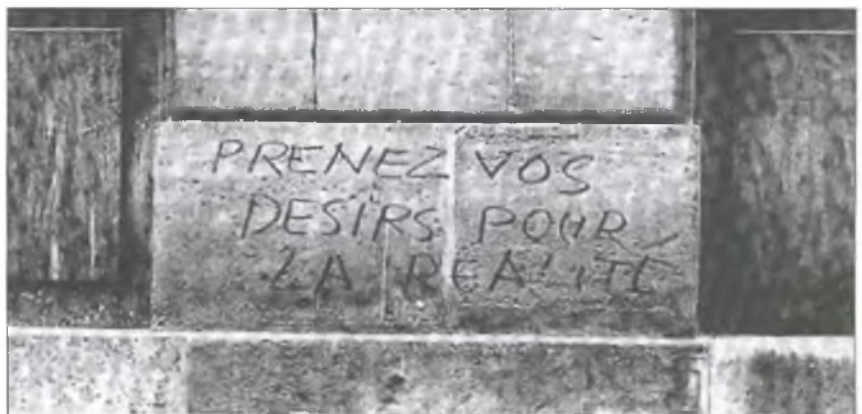 PRENEZ VOS
DESIRS POUR
LA REALITÉ